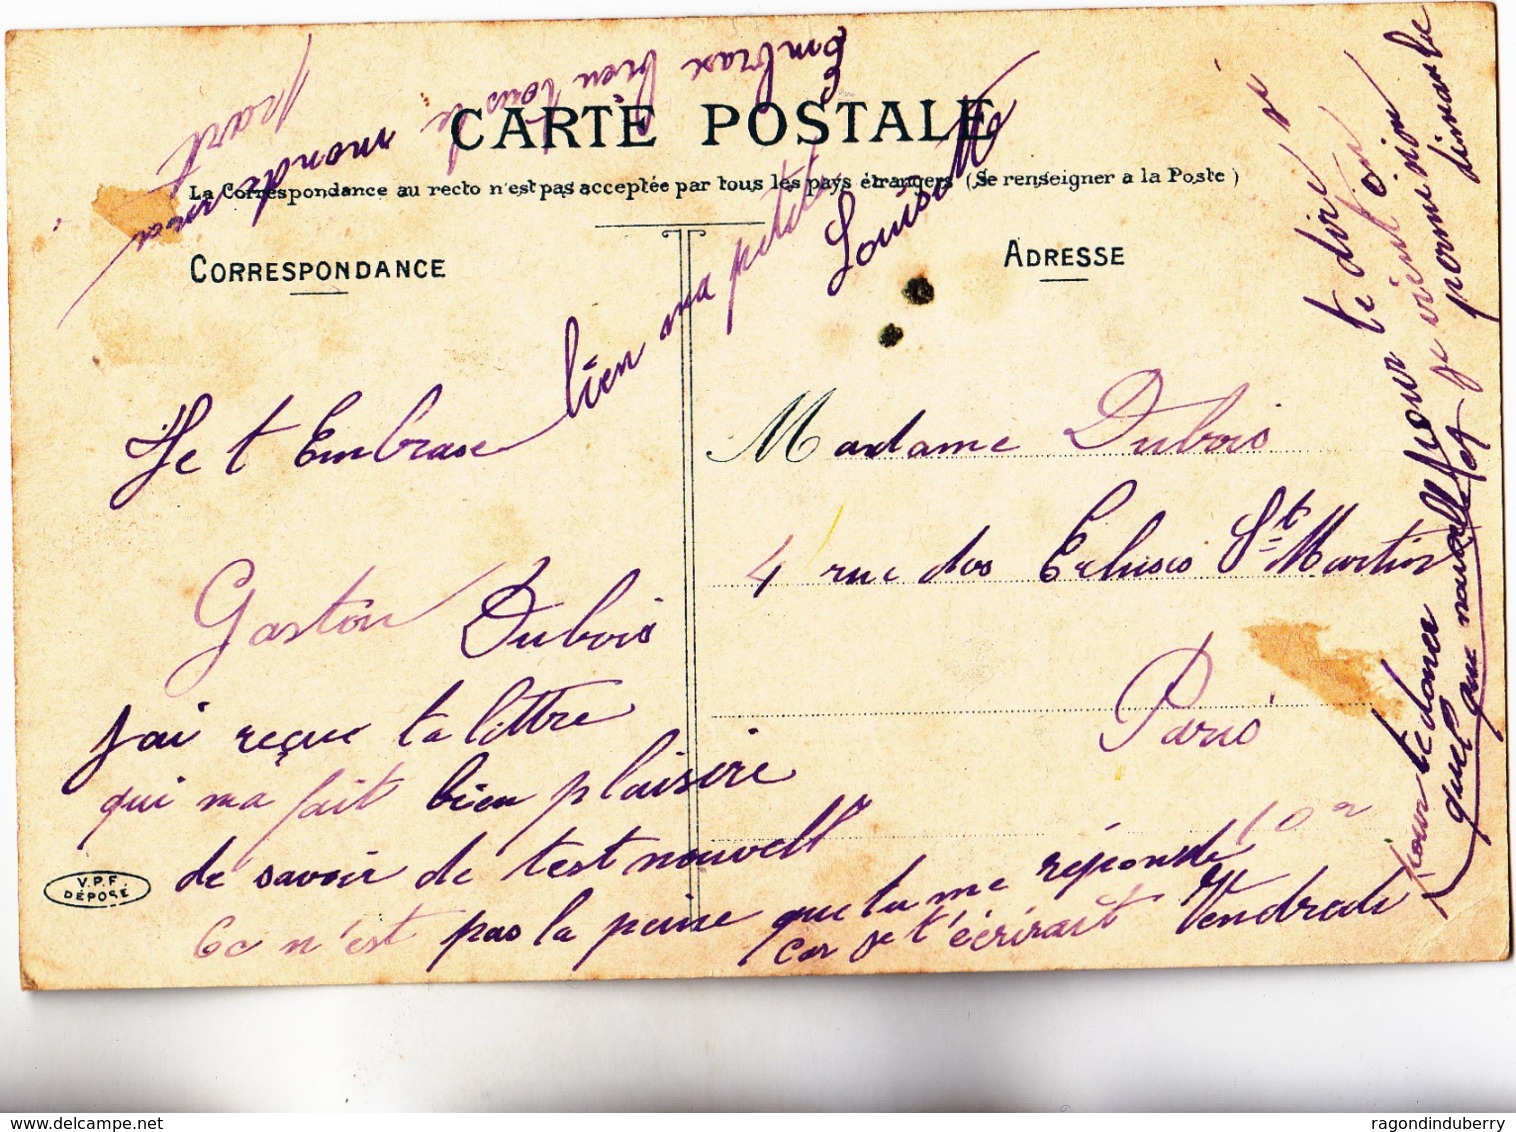 CARTE POSTALE
La Correspondance au recto n'est pas acceptée par tous les pays étrangers (Se renseigner a la Poste)
CORRESPONDANCE
ADRESSE
Je t Embrase bien ma petite Louisette
Gaston Dubois
J'ai reçue ta lettre
qui ma fait bien plaisire
de savoir de test nouvell
Ce n'est pas la peine que tu me réponde
car je t'écrirait Vendredi
pour te doner
quel que nouvelle
pour te dire si
je vient on
permision
dimanche
Embrase bien tous le
monde
part
Madame Dubois
4 rue des Ecluses St Martin
Paris
10e
V.P.F.
DÉPOSÉ
ragondinduberry